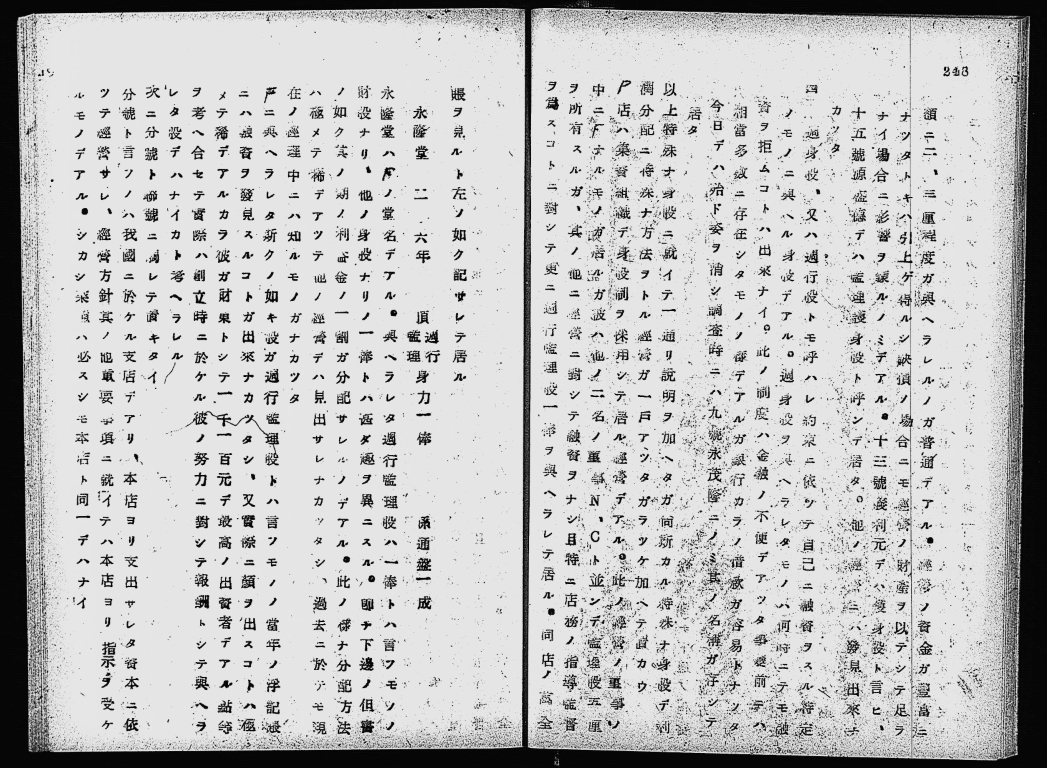 248
額ニ二、三厘程度ガ與ヘラレルノガ普通デアル。經營ノ資金ガ豐富ニ
ナツタトキハ引上ゲ得ルシ缺損ノ場合ニモ經營ノ財產ヲ以テシテ足ラ
ナイ場合ニ影響ヲ蒙ルノミデアル。十三號義利元デハ護身股ト言ヒ、
十五號源盛德デハ監理護身股ト呼ンデ居タ。他ノ經營ニハ發見出來ナ
カツタ
四 過身股、又ハ過行股トモ呼バレ約束ニ依ツテ自己ニ融資ヲスル特定
ノモノニ與ヘル身股デアル。過身股ヲ與ヘラレタモノハ何時ニテモ融
資ヲ拒ムコトハ出來ナイ。此ノ制度ハ金融ノ不便デアツタ事變前ニハ
相當多數ニ存在シタモノノ樣デアルガ銀行カラノ借款ガ容易トナツタ
今日デハ殆ド姿ヲ消シ調査時ニハ九號永茂隆ニノミ其ノ名稱ガ存シテ
居タ
以上特殊ナ身股ニ就イテ一通リ說明ヲ加ヘタガ尙斯カル特殊ナ身股デ利
潤分配ニ特殊ナ方法ヲトル經營ガ一戶アツタガラツケ加ヘテ置カウ
P店ハ集資組織デ身股制ヲ採用シテ居ル經營デアル。此ノ經營ノ董事ノ
中ニFナルモノガ居ルガ彼ハ他ノ二名ノ董事N、Cト並ンデ監理股五厘
ヲ所有スルガ、其ノ他ニ經營ニ對シテ融資ヲナシ且特ニ店務ノ指導監督
ヲ爲スコトニ對シテ更ニ過行監理股一俸ヲ與ヘラレテ居ル。同店ノ萬全
賬ヲ見ルト左ノ如ク記サレテ居ル
永隆堂 二 六年 頂 過行監理 身力一俸 係通盤一成
永隆堂ハFノ堂名デアル。與ヘラレタ過行監理股ハ一俸トハ言フモノノ
財股ナリ、他ノ身股ナリノ一俸トハ甚ダ趣ヲ異ニスル。卽チ下邊ノ但書
ノ如ク其ノ期ノ利益金ノ一割ガ分配サレルノデアル。此ノ樣ナ分配方法
ハ極メテ稀デアツテ他ノ經營デハ見出サレナカツタシ、過去ニ於テモ現
在ノ經理中ニハ知ルモノガナカツタ
Fニ與ヘラレタ斯クノ如キ股ガ過行監理股トハ言フモノノ當年ノ浮記賬
ニハ融資ヲ發見スルコトガ出來ナカツタシ、又實際ニ顏ヲ出スコトハ極
メテ稀デアルカラ彼ガ財東トシテ一千一百元デ最高ノ出資者デアル點等
ヲ考ヘ合セテ實際ハ創立時ニ於ケル彼ノ努力ニ對シテ報酬トシテ與ヘラ
レタ股デハナイカト考ヘラレル
次ニ分號ト聯號ニ觸レテ置キタイ
分號ト言フノハ我國ニ於ケル支店デアリ、本店ヨリ支出サレタ資本ニ依
ツテ經營サレ、經營方針其ノ他重要事項ニ就イテハ本店ヨリ指示ヲ受ケ
ルモノデアル。シカシ業種ハ必スシモ本店ト同一デハナイ